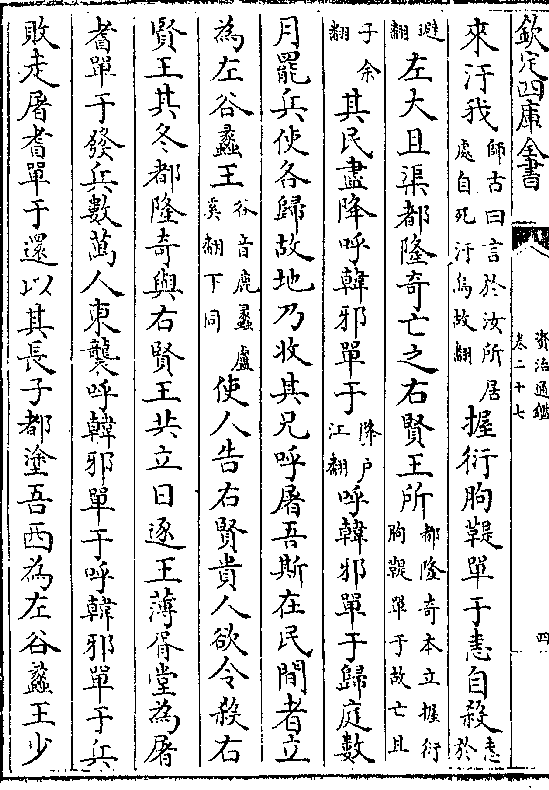 欽定四庫全書
資治通鑑
卷二十七
四
來汙我師古曰言於汝所居處自死汙烏故翻握衍朐鞮單于恚自殺恚於
避翻左大且渠都隆奇亡之右賢王所都隆奇本立握衍朐鞮單于故亡且
子余翻其民盡降呼韓邪單于降戶江翻呼韓邪單于歸庭數
月罷兵使各歸故地乃收其兄呼屠吾斯在民間者立
為左谷蠡王谷音鹿蠡盧奚翻下同使人告右賢貴人欲令殺右
賢王其冬都隆奇與右賢王共立日逐王薄胥堂為屠
耆單于發兵數萬人東襲呼韓邪單于呼韓邪單于兵
敗走屠耆單于還以其長子都塗吾西為左谷蠡王少